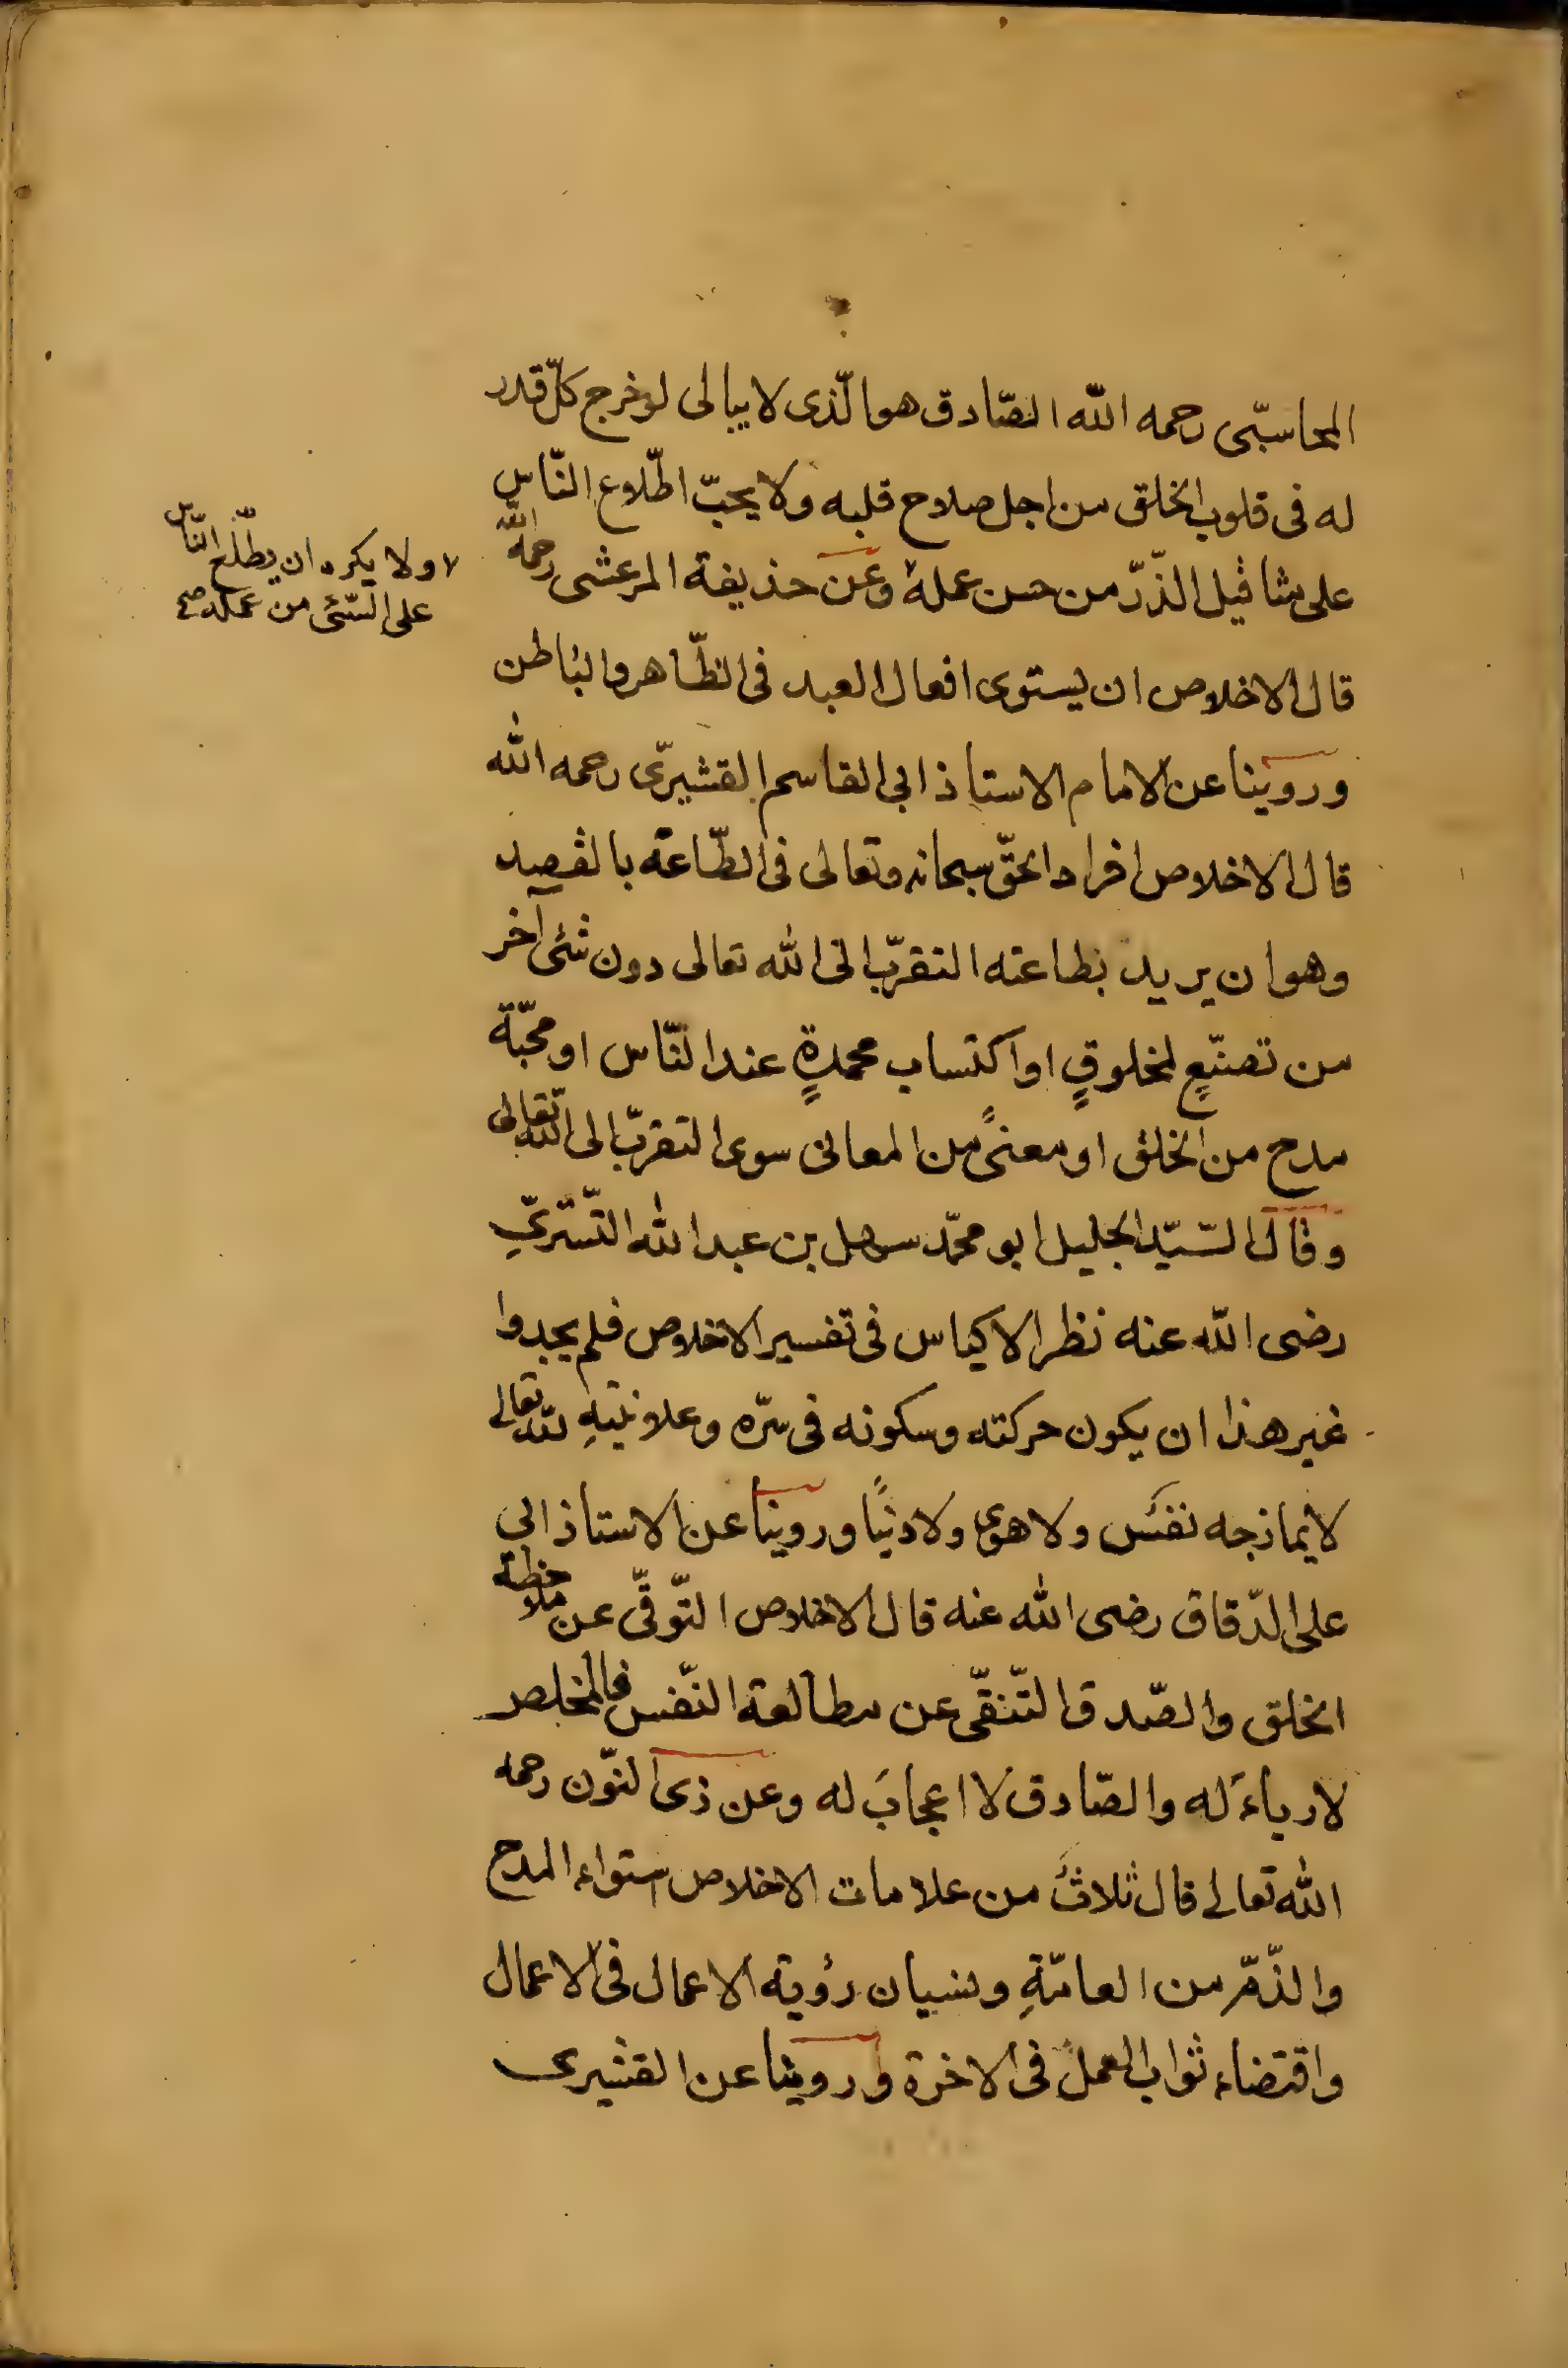 المحاسبّى رحمه الله الصّادق هو الّذى لا يبالى لو خرج كلّ قدر
له فى قلوب الخلق من اجل صلاح قلبه ولا يحبّ اطّلاع النّاس
على مثاقيل الذّرّ من حسن عمله وعن حذيفة المرعشى رحمه الله
قال الاخلاص ان يستوى افعال العبد فى الظّاهر والباطن
وروينا عن الامام الاستاذ ابى القاسم القشيرىّ رحمه الله
قال الاخلاص افراد الحقّ سبحانه وتعالى فى الطّاعة بالقصد
وهو ان يريد بطاعته التقرّب الى الله تعالى دون شئ آخر
من تصنّعٍ لمخلوقٍ او اكتساب محمدةٍ عند النّاس او محبّة
مدح من الخلق او معنىً من المعانى سوى التقرّب الى الله تعالى
وقال السّيّد الجليل ابو محمّد سهل بن عبد الله التّسترىّ
رضى الله عنه نظر الاكياس فى تفسير الاخلاص فلم يجدوا
غير هذا ان يكون حركته وسكونه فى سرّه وعلانيتهِ لله تعالى
لا يمازجه نفسٌ ولا هوى ولا دنيًا وروينا عن الاستاذ ابى
على الدّقاق رضى الله عنه قال الاخلاص التّوقّى عن ملاحظة
الخلق والصّدق التّنقّى عن مطالعة النّفس فالمخلص
لا رياءَ له والصّادق لا اعجابَ له وعن ذى النّون رحمه
الله تعالى قال ثلاثٌ من علامات الاخلاص استواء المدح
والذّمّ من العامّةِ ونسيان رؤية الاعمال فى الاعمال
واقتضاء ثواب العمل فى الاخرة وروينا عن القشيرى
ولا يكره ان يطّلع النّاس
على السّئ من عمله صح